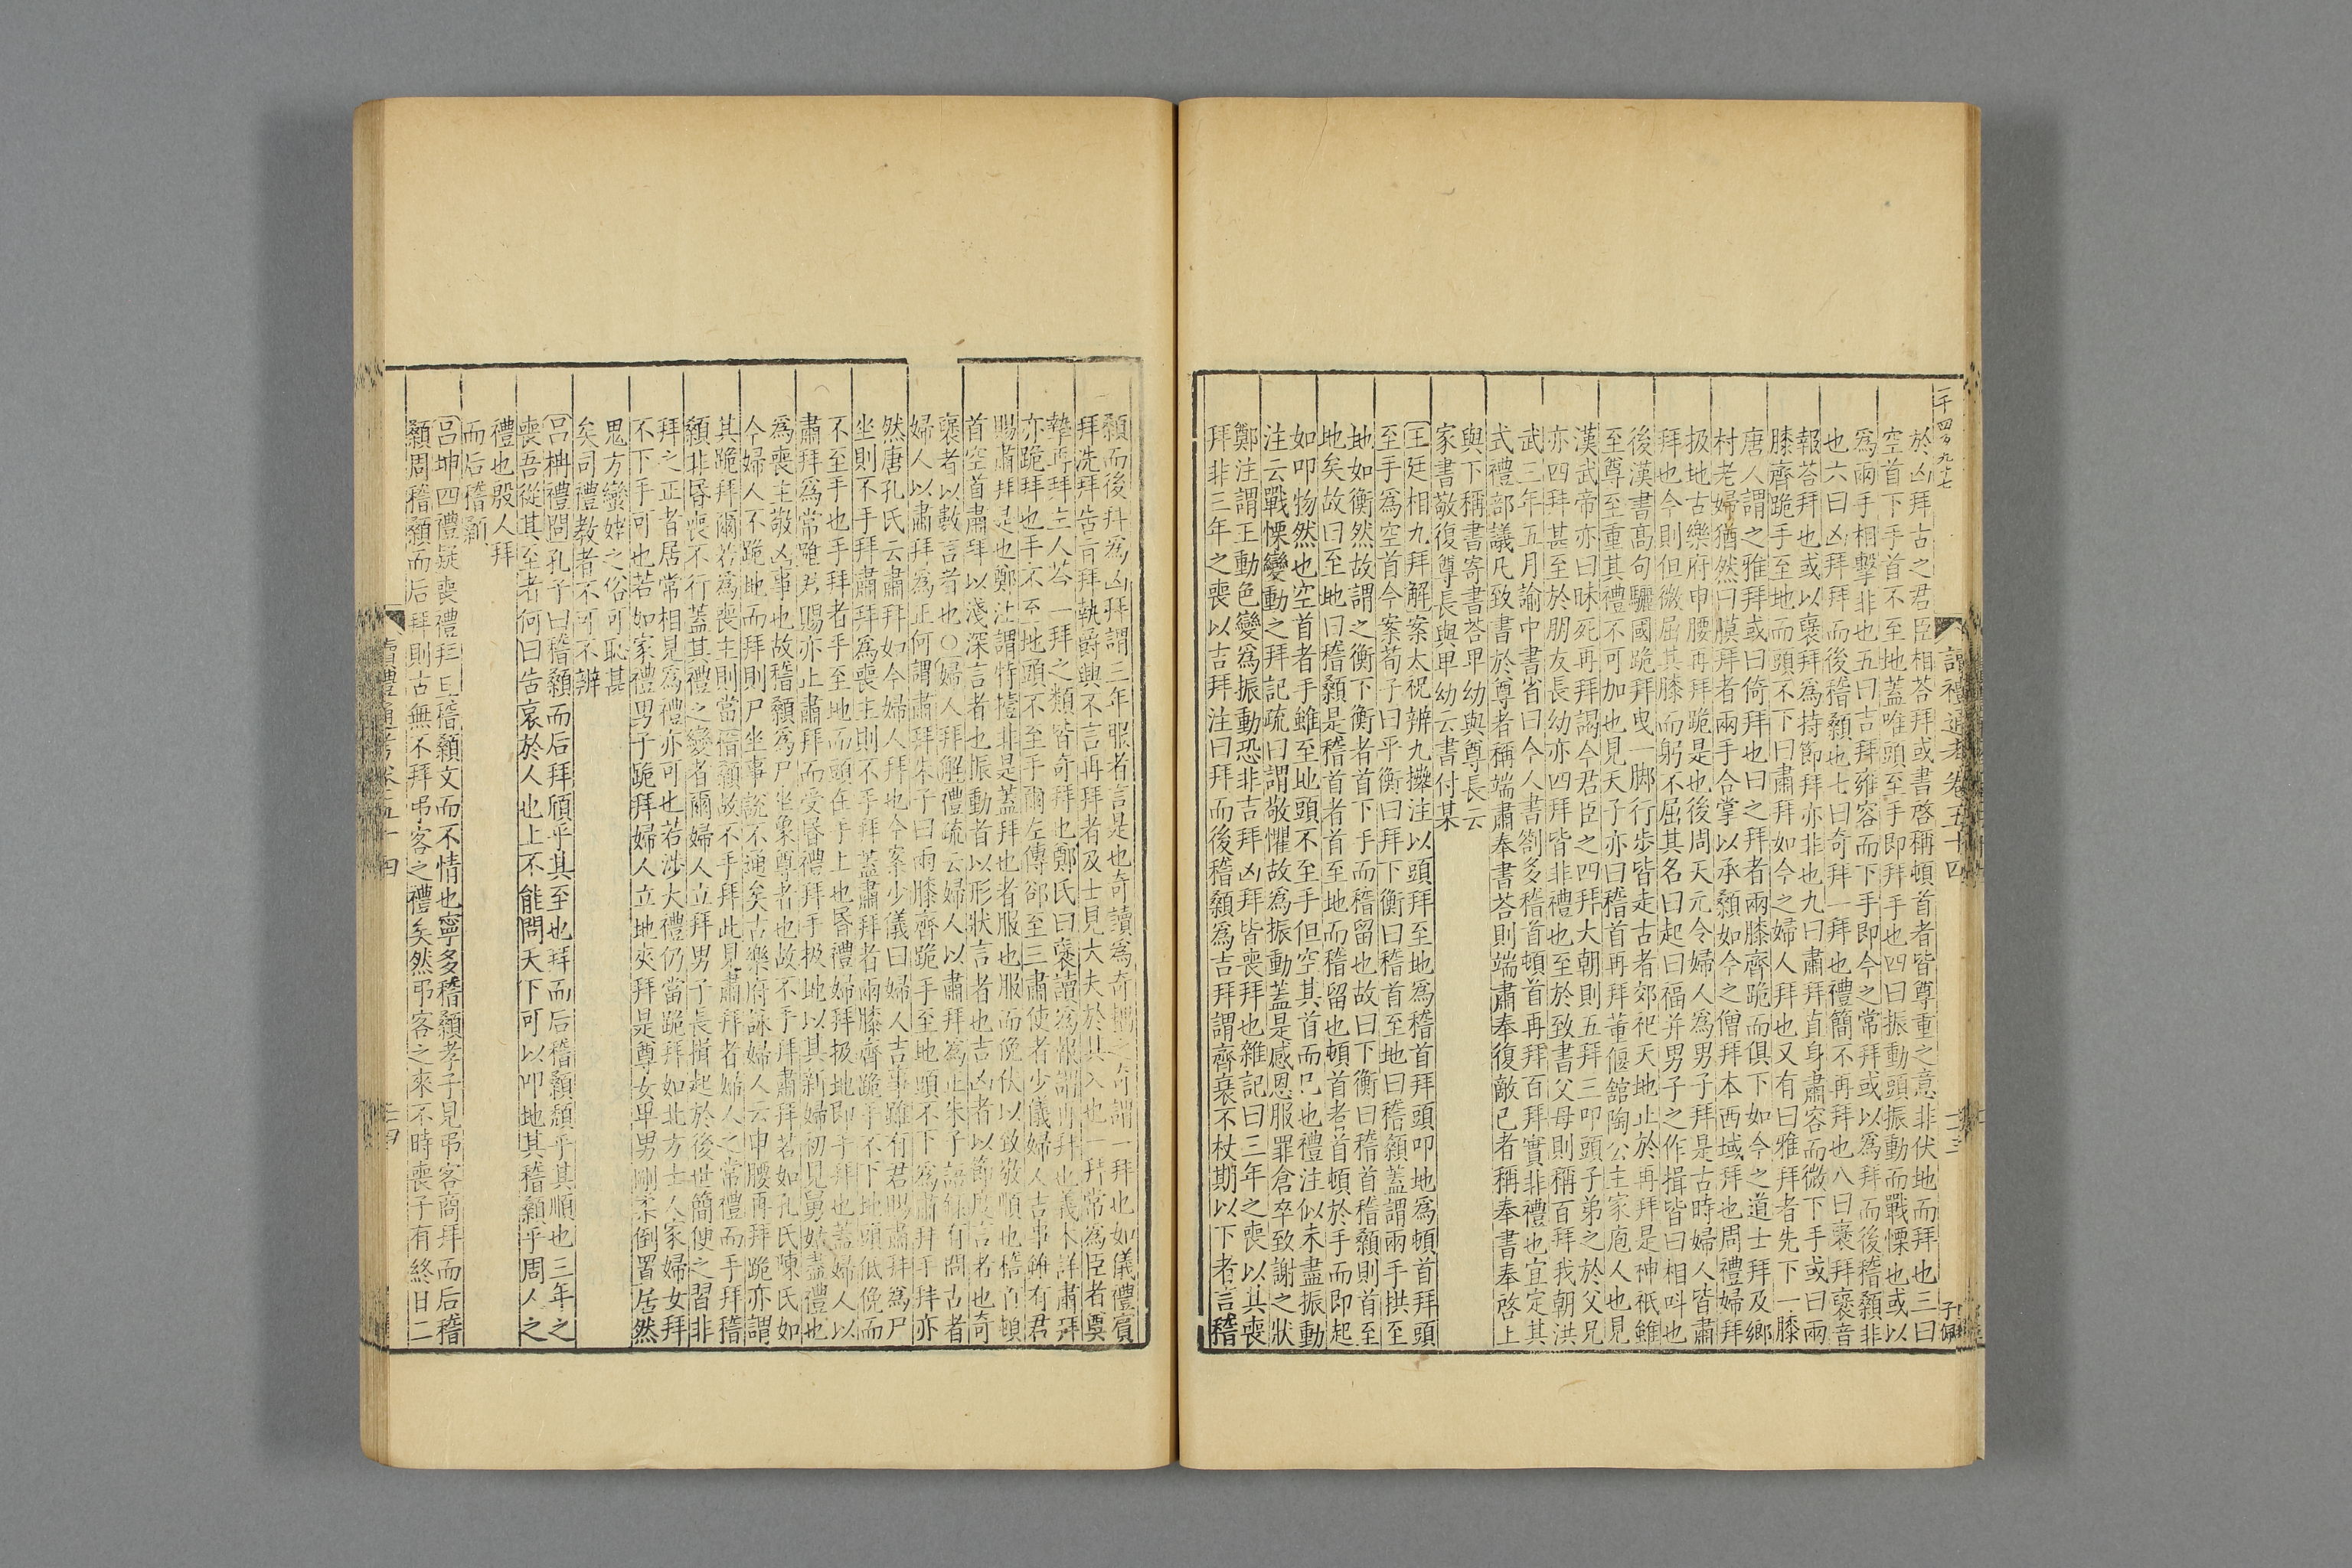 一千四百九十七
於凶拜古之君臣相荅拜或書啓稱頓首者皆尊重之意非伏地而拜也三曰
空首下手首不至地蓋唯頭至手即拜手也四曰振動頭振動而戰慄也或以
爲兩手相擊非也五曰吉拜雍容而下手即今之常拜或以爲拜而後稽顙非
也六曰凶拜拜而後稽顙也七曰奇拜一拜也禮簡不再拜也八曰襃拜襃音
報荅拜也或以襃拜爲持節拜亦非也九曰肅拜直身肅容而微下手或曰兩
膝齊跪手至地而頭不下曰肅拜如今之婦人拜也又有曰雅拜者先下一膝
唐人謂之雅拜或曰倚拜也曰之拜者兩膝齊跪而俱下如今之道士拜及鄉
村老婦猶然曰膜拜者兩手合掌以承顙如今之僧拜本西域拜也周禮婦拜
扱地古樂府申腰再拜跪是也後周天元令婦人爲男子拜是古時婦人皆肅
拜也今則但微屈其膝而躬不屈其名曰起曰福并男子之作揖皆曰相叫也
後漢書高句驪國跪拜曳一脚行步皆走古者郊祀天地止於再拜是神祇雖
至尊至重其禮不可加也見天子亦曰稽首再拜董偃舘陶公主家庖人也見
漢武帝亦曰昧死再拜謁今君臣之四拜大朝則五拜三叩頭子弟之於父兄
亦四拜甚至於朋友長幼亦四拜皆非禮也至於致書父母則稱百拜我朝洪
武三年五月諭中書省曰今人書劄多稽首頓首再拜百拜實非禮也宜定其
式禮部議凡致書於尊者稱端肅奉書荅則端肅奉復敵已者稱奉書奉啓上
與下稱書寄書荅卑幼與尊長云
家書敬復尊長與卑幼云書付某
王廷相九拜解案太祝辨九㩲注以頭拜至地爲稽首拜頭叩地爲頓首拜頭
至手爲空首今案荀子曰平衡曰拜下衡曰稽首至地曰稽顙蓋謂兩手拱至
地如衡然故謂之衡下衡者首下手而稽留也故曰下衡曰稽首稽顙則首至
地矣故曰至地曰稽顙是稽首者首至地而稽留也頓首者首頓於手而即起
如叩物然也空首者手雖至地頭不至手但空其首而已也禮注似未盡振動
注云戰慄變動之拜記疏曰謂敬懼故爲振動蓋是感恩服罪倉卒致謝之狀
鄭注謂王動色變爲振動恐非吉拜凶拜皆喪拜也雜記曰三年之喪以其喪
拜非三年之喪以吉拜注曰拜而後稽顙爲吉拜謂齊衰不杖期以下者言稽
顙而後拜爲凶拜謂三年服者言是也奇讀爲奇耦之奇謂一拜也如儀禮賓
拜洗拜告旨拜執爵興不言再拜者及士見大夫於其入也一拜常爲臣者奠
摯再拜主人荅一拜之類皆奇拜也鄭氏曰襃讀爲報謂再拜也義不詳肅拜
亦跪拜也手不至地頭不至手爾左傳郤至三肅使者少儀婦人吉事雖有君
賜肅拜是也鄭注謂特擡非是蓋拜也者服也服而俛伏以致敬順也稽首頓
首空首肅拜以淺深言者也振動者以形狀言者也吉凶者以節度言者也奇
襃者以數言者也○婦人拜解禮疏云婦人以肅拜爲正朱子語録有問古者
婦人以肅拜爲正何謂肅拜朱子曰兩膝齊跪手至地頭不下爲肅拜手拜亦
然唐孔氏云肅拜如今婦人拜也今案少儀曰婦人吉事雖有君賜肅拜爲尸
坐則不手拜肅拜爲喪主則不手拜蓋肅拜者兩膝齊跪手不下地頭低俛而
不至手也手拜者手至地而頭在手上也昏禮婦拜扱地即手拜也蓋婦人以
肅拜爲常雖君賜亦止肅拜而受昏禮拜手扱地以其新婦初見舅姑盡禮也
爲喪主敬凶事也故稽顙爲尸坐象尊者也故不手拜肅拜若如孔氏陳氏如
今婦人不跪地而拜則尸坐事說不通矣古樂府詠婦人云申腰再拜跪亦謂
其跪拜爾若爲喪主則當稽顙故不手拜此見肅拜者婦人之常禮而手拜稽
顙非昏喪不行蓋其禮之變者爾婦人立拜男子長揖起於後世簡便之習非
拜之正者居常相見爲禮亦可也若涉大禮仍當跪拜如北方士人家婦女拜
不下手可也若如家禮男子跪拜婦人立地夾拜是尊女卑男剛柔倒置居然
鬼方蠻姥之俗可恥甚
矣司禮教者不可不辨
呂柟禮問孔子曰稽顙而后拜頎乎其至也拜而后稽顙頹乎其順也三年之
喪吾從其至者何曰告哀於人也上不能問天下可以叩地其稽顙乎周人之
禮也殷人拜
而后稽顙
呂坤四禮疑喪禮拜且稽顙文而不情也寧多稽顙孝子見弔客商拜而后稽
顙周稽顙而后拜則古無不拜弔客之禮矣然弔客之來不時喪子有終日二
讀禮通考卷五十四